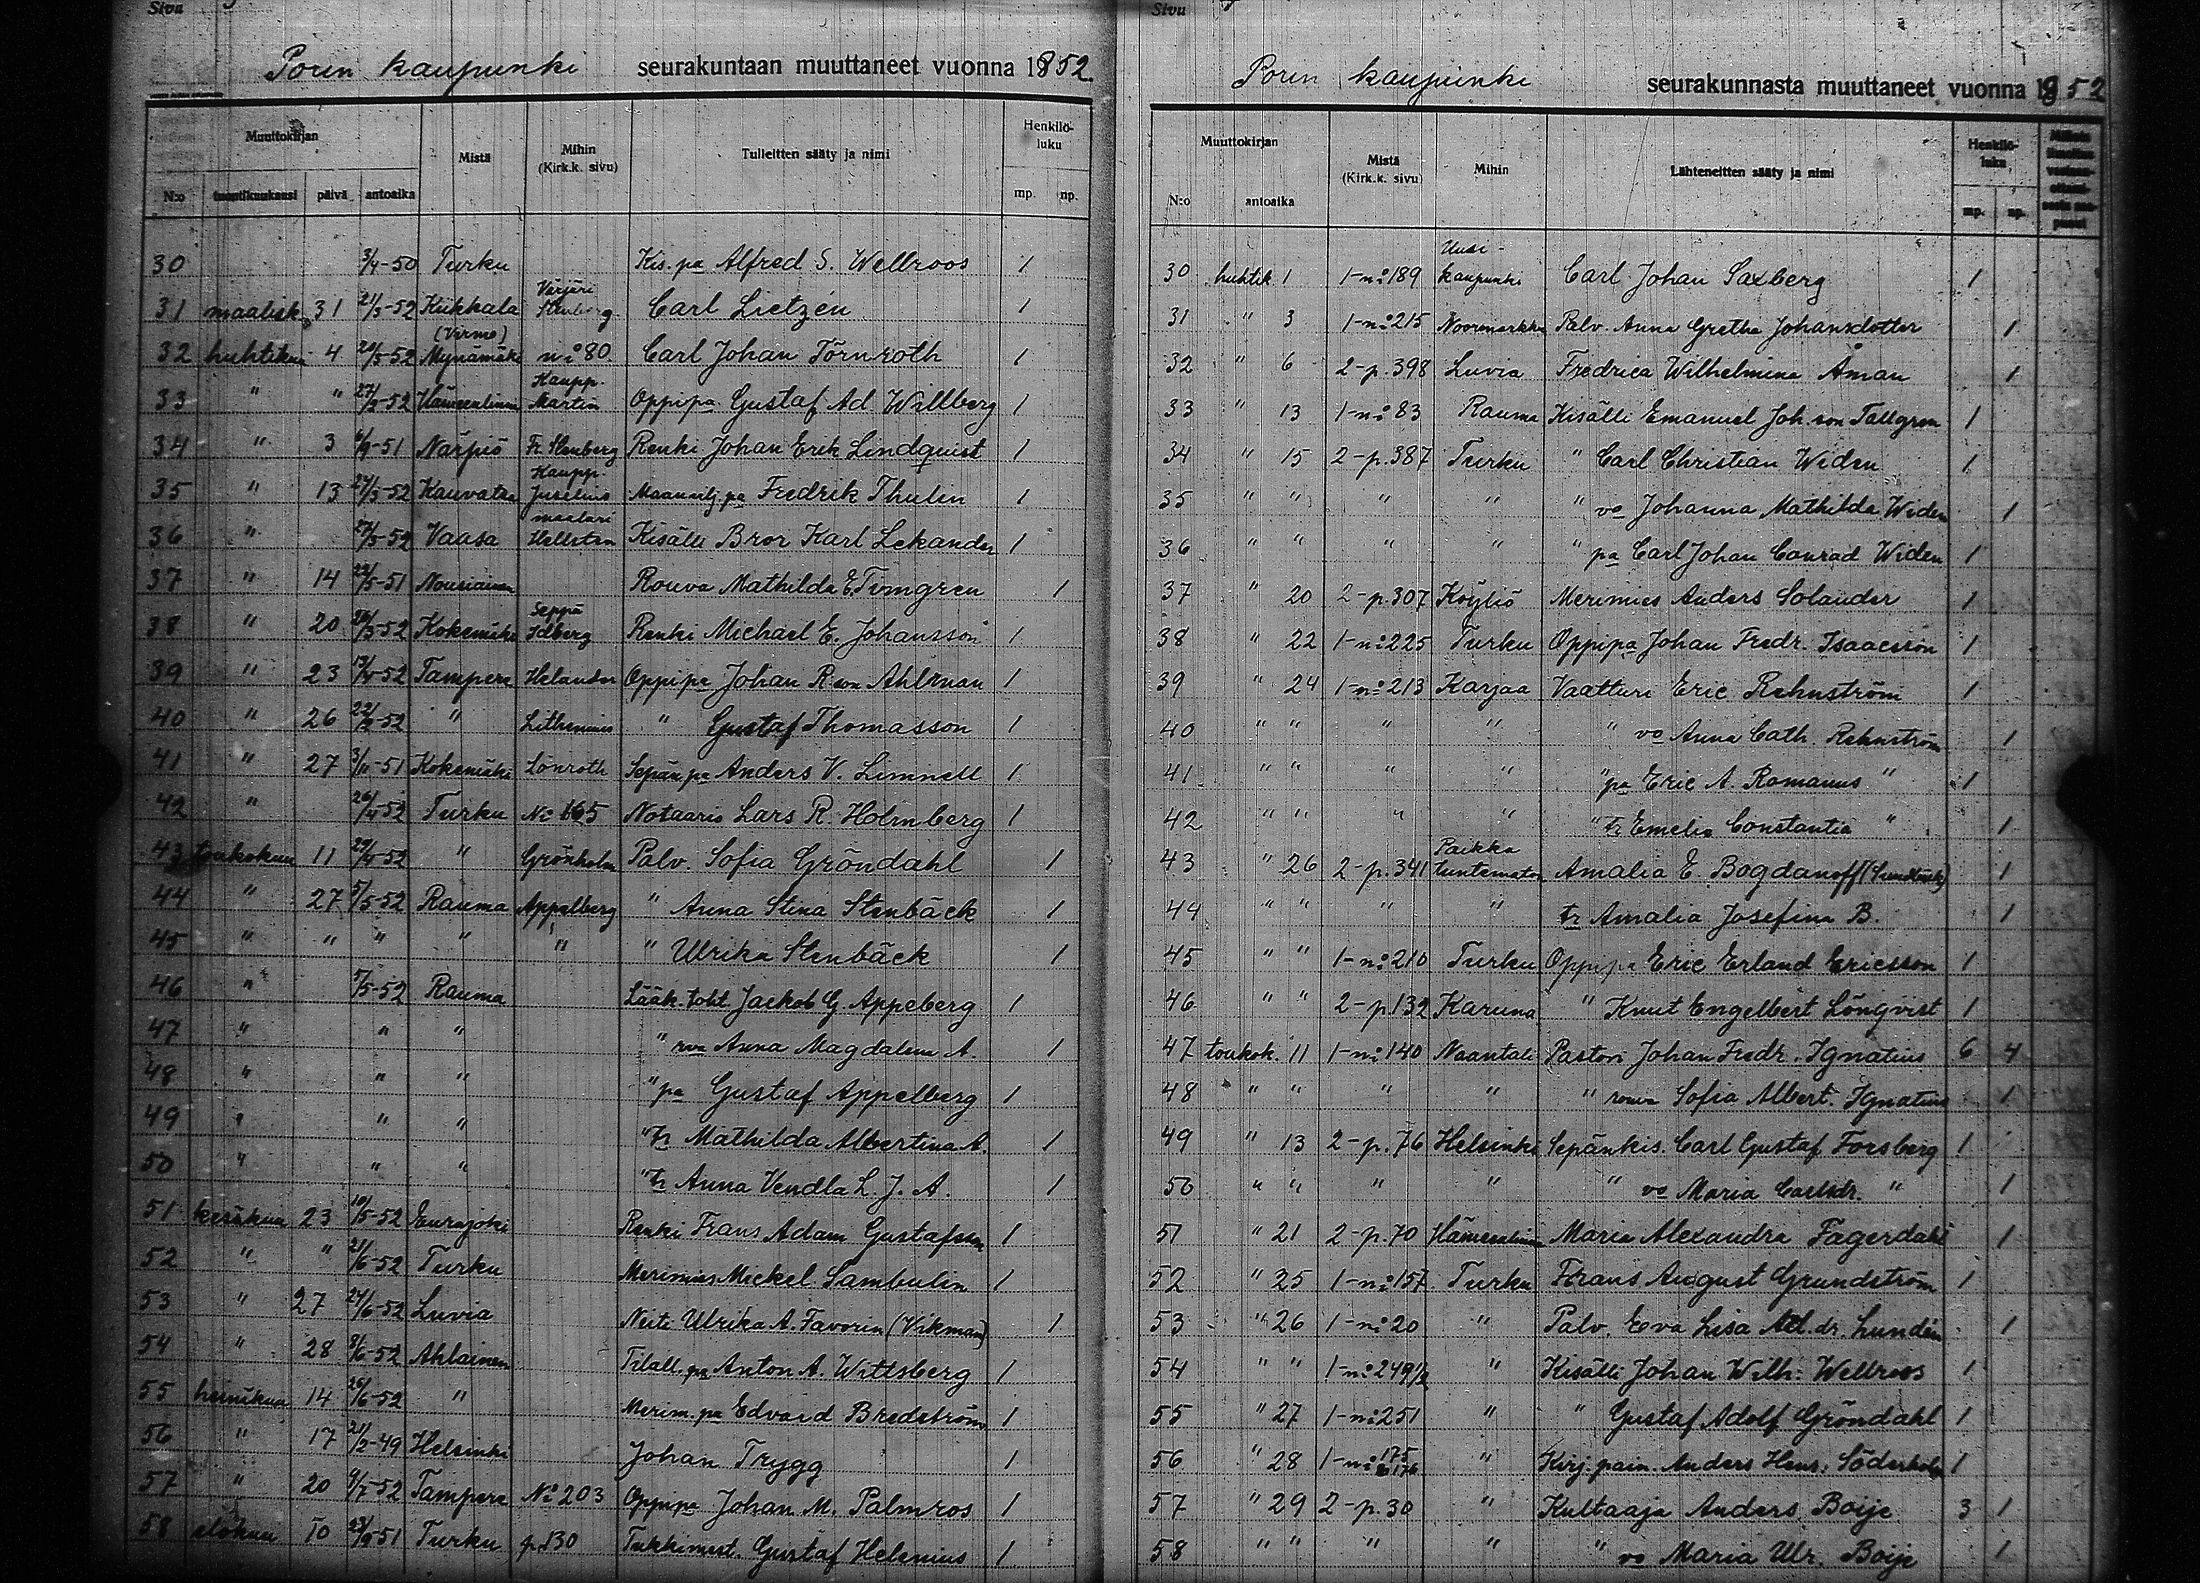 Sivu
Porin kaupunki seurakuntaan muuttaneet vuonna 1852
Muuttokirjan Mistä Mihin (Kirk.k. sivu) Tulleitten sääty ja nimi Henkilöluku
N:o tuontikuukausi päivä antoaika mp. np.
30 3/4-50 Turku Kis. pa Alfred S. Wellroos 1
31 maalisk. 31 21/3-52 Kiikkala Värjäri Stenberg Carl Lietzén 1
32 huhtikuu 4 20/3-52 (Virmo) Mynämäki n:o 80. Carl Johan Törnroth 1
33 " " 27/2-52 Hämeenlinna Kaupp. Martin Oppipa Gustaf Ad Willberg 1
34 " 3 6/9-51 Närpiö Fr. Stenberg Renki Johan Erik Lindquist 1
35 " 13 27/3-52 Kauvatsa Kaupp. Juselius Maanvilj. pa Fredrik Thulin 1
36 " 27/3-52 Vaasa maalari Hellsten Kisälli Bror Karl Lekander 1
37 " 14 22/5-51 Nousiainen Rouva Mathilda E. Tvingren 1
38 " 20 28/3-52 Kokemäki Seppä Idberg Renki Michael E. Johansson 1
39 " 23 13/4-52 Tampere Helander Oppipa Johan R.son Ahlman 1
40 " 26 22/2-52 " Lithenius " Gustaf Thomasson 1
41 " 27 3/11-51 Kokemäki Lönroth Sepän pa Anders V. Limnell 1
42 " 26/4-52 Turku No 165 Notaario Lars R. Holmberg 1
43 toukokuu 11 29/4-52 " Grönholm Palv. Sofia Gröndahl 1
44 " 27 5/5-52 Rauma Appelberg " Anna Stina Stenbäck 1
45 " " " " " " Ulrika Stenbäck 1
46 " 5/5-52 Rauma Lääk. toht. Jackob G. Appeberg 1
47 " " " " rva Anna Magdalena A. 1
48 " " " " pa Gustaf Appelberg 1
49 " " " " tr Mathilda Albertina A. 1
50 " " " " tr Anna Vendla L. J. A. 1
51 kesäkuu 23 10/5-52 Eurajoki Renki Frans Adam Gustafsson 1
52 " " 21/6-52 Turku Merimies Mickel Sambulin 1
53 " 27 24/6-52 Luvia Neiti Ulrika A. Favorin (Vikman) 1
54 " 28 8/6-52 Ahlainen Tilall. pa Anton A. Wittsberg 1
55 heinäkuu 14 25/6-52 " Merim. pa Edvard Bredström 1
56 " 17 21/2-49 Helsinki Johan Trygg 1
57 " 20 9/7-52 Tampere No 203 Oppipa Johan M. Palmros 1
58 elokuu 10 23/9-51 Turku p. 130 Tukkimest. Gustaf Helenius 1
Sivu
Porin kaupunki seurakunnasta muuttaneet vuonna 1852
Muuttokirjan Mistä (Kirk.k. sivu) Mihin Lähteneitten sääty ja nimi Henkilöluku
N:o antoaika mp. np.
30 huhtik 1 1-n:o 189 Uusikaupunki Carl Johan Saxberg 1
31 " 3 1-n:o 215 Noormarkku Palv. Anna Gretha Johansdotter 1
32 6 2-p. 398 Luvia Fredrica Wilhelmina Åman 1
33 " 13 1-n:o 83 Rauma Kisälli Emanuel Joh. son Tallgren 1
34 " 15 2-p. 387 Turku " Carl Christian Widen 1
35 " " " " " vo Johanna Mathilda Widen 1
36 " " " " " pa Carl Johan Conrad Widen 1
37 " 20 2-p. 307 Köyliö Merimies Anders Solander 1
38 " 22 1-n:o 225 Turku Oppipa Johan Fredr. Isaacsson 1
39 " 24 1-n:o 213 Karjaa Vaatturi Eric Rehnström 1
40 " " " " " vo Anna Cath. Rehnström 1
41 " " " " " pa Eric A. Romanus " 1
42 " " " " " tr Emelia Constantia " 1
43 " 26 2-p. 341 Paikka tuntematon Amalia E. Bogdanoff (Sundbäck) 1
44 " " " " tr Amalia Josefina B. 1
45 " " 1-n:o 210 Turku Oppipa Eric Erland Ericsson 1
46 " " 2-p. 132 Karuna " Knut Engelbert Lönqvist 1
47 toukok. 11 1-n:o 140 Naantali Pastori Johan Fredr. Ignatius 6 4
48 " " " " " rouva Sofia Albert. Ignatius 1
49 " 13 2-p. 76 Helsinki Sepänkis. Carl Gustaf Forsberg 1
50 " " " " " vo Maria Carlsdr. " 1
51 " 21 2-p. 70 Hämeenlinna Maria Alexandra Fagerdahl 1
52 " 25 1-n:o 157 Turku Frans August Grundström 1
53 " 26 1-n:o 20 " Palv. Eva Lisa Ad.dr. Lundén 1
54 " " 1-n:o 249 1/2 " Kisälli Johan Wilh. Wellroos 1
55 " 27 1-n:o 251 " " Gustaf Adolf Gröndahl 1
56 " 28 1-n:o 175 176 " Kirj. pain. Anders Henr. Söderholm 1
57 " 29 2-p. 30 " Kultaaja Anders Boije 3 1
58 " " " " " vo Maria Ulr. Boije 1